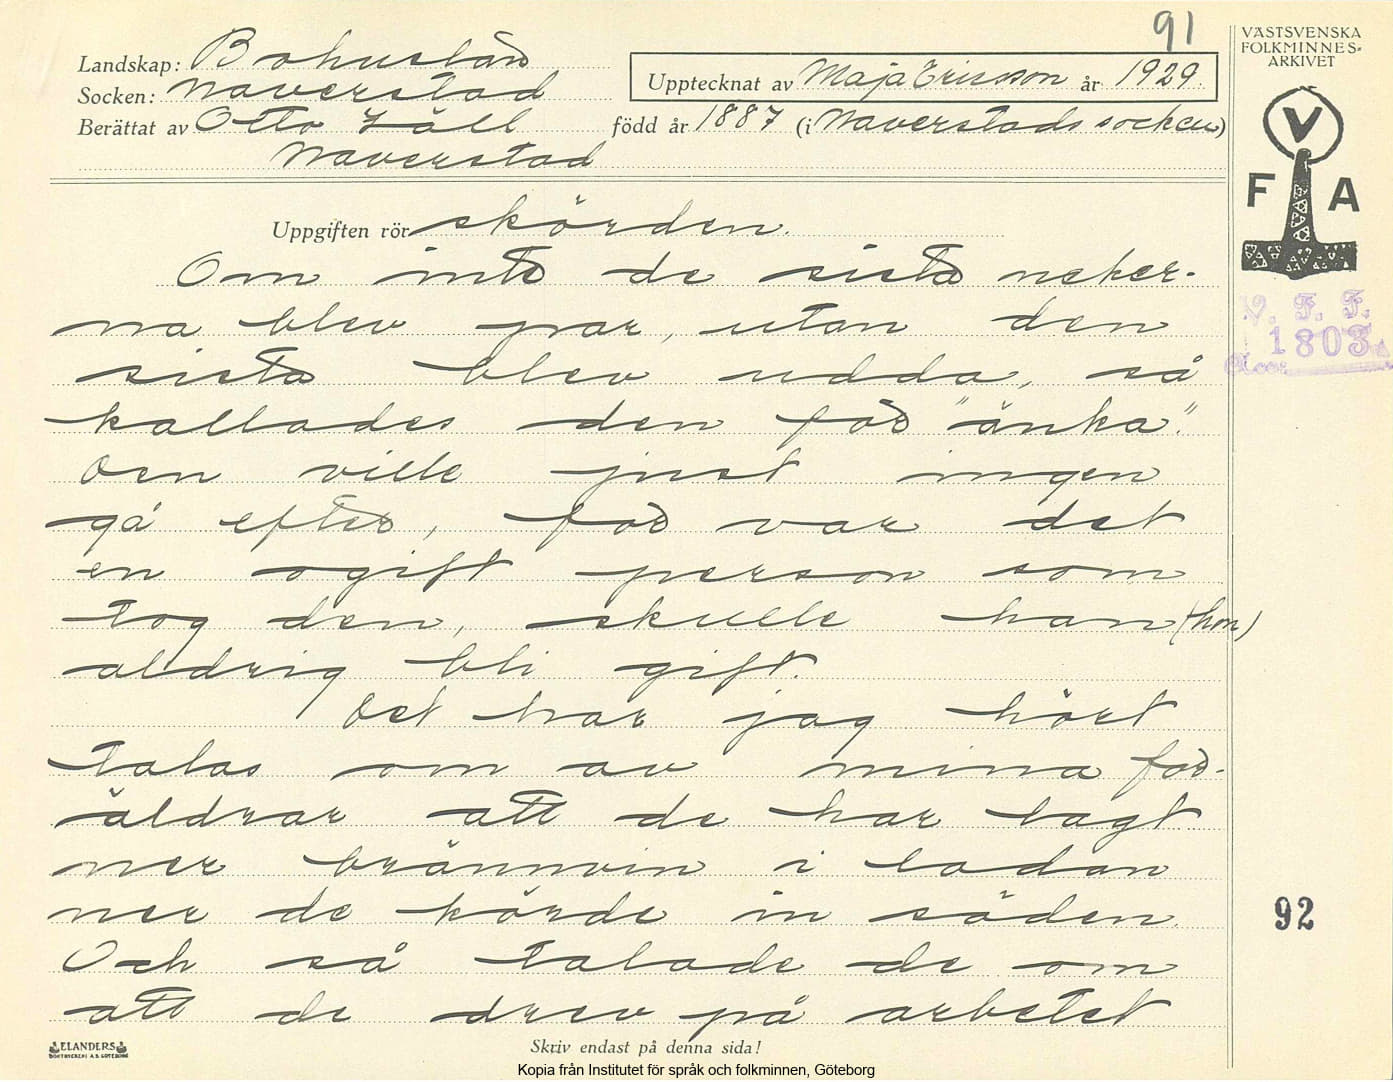 91
Landskap: Bohuslän
Socken: Naverstad
Upptecknat av Maja Ericsson år 1929.
Berättat av Otto Häll född år 1887 (i Naverstads socken)
Naverstad
Uppgiften rör skörden.
Om inte de sista neker-
na blev par, utan den
sista blev udda, så
kallades den för "änka".
Den ville just ingen
gå efter, för var det
en ogift person som
tog den, skulle han (hon)
aldrig bli gift.
Det har jag hört
talas om av mina för-
äldrar att de har tagt
mer brännvin i ladan
ner de körde in säden.
Och så talade de om
att de drev på arbetet
VÄSTSVENSKA
FOLKMINNES-
ARKIVET
V
F A
V. F. F.
1803
92
ELANDERS
BOKTRYCKERI A.B. GÖTEBORG
Skriv endast på denna sida!
Kopia från Institutet för språk och folkminnen, Göteborg